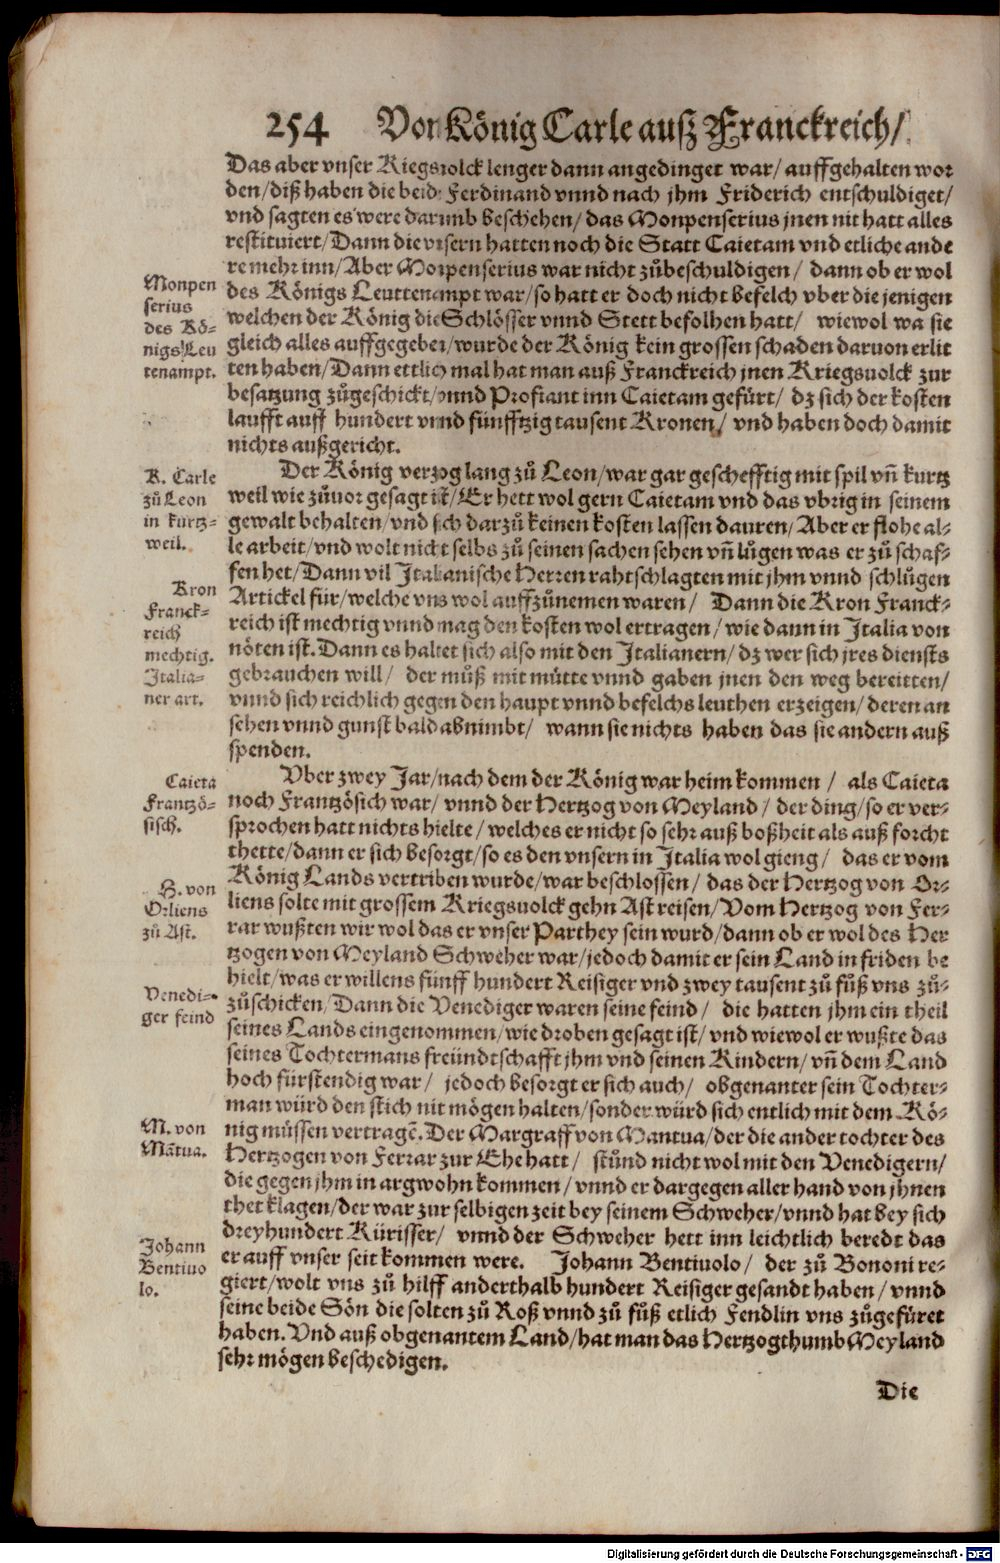 254 Von König Carle ausz Franckreich/
Das aber vnser Kriegsvolck lenger dann angedinget war/ auffgehalten wor
den/diß haben die beide Ferdinand vnnd nach jhm Friderich entschuldiget/
vnd sagten es were darumb beschehen/ das Monpenserius jnen nit hatt alles
restituiert/Dann die vnsern hatten noch die Statt Caietam vnd etliche ande
re mehr inn/Aber Monpenserius war nicht zůbeschuldigen/ dann ob er wol
des Königs Leuttenampt war/so hatt er doch nicht befelch vber die jenigen
welchen der König die Schlösser vnnd Stett befolhen hatt/ wiewol wa sie
gleich alles auffgegeben/wurde der König kein grossen schaden daruon erlit
ten haben/Dann ettlich mal hat man auß Franckreich jnen Kriegsuolck zur
besatzung zůgeschickt/vnnd Profiant inn Caietam gefürt/ dz sich der kosten
laufft auff hundert vnnd fünfftzig tausent Kronen/ vnd haben doch damit
nichts außgericht.
Monpen
serius
des Kö-
nigs Leu
tenampt.
Der König verzog lang zů Leon/war gar geschefftig mit spil vñ kurtz
weil wie zůuor gesagt ist/Er hett wol gern Caietam vnd das vbrig in seinem
gewalt behalten/vnd sich darzů keinen kosten lassen dauren/Aber er flohe al-
le arbeit/vnd wolt nicht selbs zů seinen sachen sehen vñ lůgen was er zů schaf-
fen het/Dann vil Italianische Herren rahtschlagten mit jhm vnnd schlůgen
Artickel für/welche vns wol auffzůnemen waren/ Dann die Kron Franck-
reich ist mechtig vnnd mag den kosten wol ertragen/wie dann in Italia von
nöten ist. Dann es haltet sich also mit den Italianern/dz wer sich jres diensts
gebrauchen will/ der můß mit mütte vnnd gaben jnen den weg bereitten/
vnnd sich reichlich gegen den haupt vnnd befelchs leuthen erzeigen/deren an
sehen vnnd gunst bald abnimbt/ wann sie nichts haben das sie andern auß
spenden.
K. Carle
zů Leon
in kurtz-
weil.
Kron
Franck-
reich
mechtig.
Italia-
ner art.
Vber zwey Jar/nach dem der König war heim kommen/ als Caieta
noch Frantzösich war/ vnnd der Hertzog von Meyland/ der ding/so er ver-
sprochen hatt nichts hielte/welches er nicht so sehr auß boßheit als auß forcht
thette/dann er sich besorgt/so es den vnsern in Italia wol gieng/ das er vom
König Lands vertriben wurde/war beschlossen/das der Hertzog von Or-
liens solte mit grossem Kriegsuolck gehn Ast reisen/Vom Hertzog von Fer-
rar wußten wir wol das er vnser Parthey sein wurd/dann ob er wol des Her
tzogen von Meyland Schweher war/jedoch damit er sein Land in friden be
hielt/was er willens fünff hundert Reisiger vnd zwey tausent zů fůß vns zů-
zůschicken/Dann die Venediger waren seine feind/ die hatten jhm ein theil
seines Lands eingenommen/wie droben gesagt ist/vnd wiewol er wußte das
seines Tochtermans freündtschafft jhm vnd seinen Kindern/vñ dem Land
hoch fürstendig war/ jedoch besorgt er sich auch/ obgenanter sein Tochter-
man würd den stich nit mögen halten/sonder würd sich entlich mit dem Kö-
nig müssen vertragẽ. Der Margraff von Mantua/der die ander tochter des
Hertzogen von Ferrar zur Ehe hatt/ stůnd nicht wol mit den Venedigern/
die gegen jhm in argwohn kommen/vnnd er dargegen aller hand von jhnen
thet klagen/der war zur selbigen zeit bey seinem Schweher/vnnd hat bey sich
dreyhundert Kürisser/ vnnd der Schweher hett inn leichtlich beredt das
er auff vnser seit kommen were. Johann Bentiuolo/ der zů Bononi re-
giert/wolt vns zů hilff anderthalb hundert Reisiger gesandt haben/vnnd
seine beide Sön die solten zů Roß vnnd zů fůß etlich Fendlin vns zůgefüret
haben. Vnd auß obgenantem Land/hat man das Hertzogthumb Meyland
sehr mögen beschedigen.
Caieta
Frantzö-
sisch.
H. von
Orliens
zů Ast.
Venedi-
ger feind
M. von
Mãtua.
Johann
Bentiuo
lo.
Die
Digitalisierung gefördert durch die Deutsche Forschungsgemeinschaft - DFG